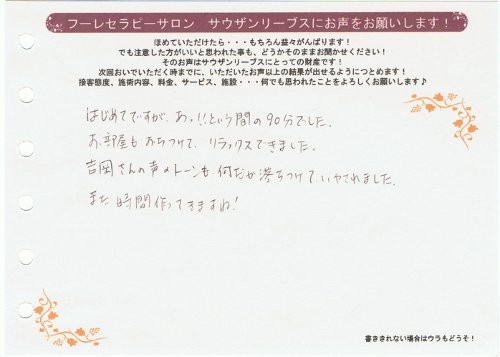 フーレセラピーサロン　サウザンリーブスにお声をお願いします！
ほめていただけたら・・・もちろん益々がんばります！
でも注意した方がいいと思われた事も、どうかそのままお聞かせください！
そのお声はサウザンリーブスにとっての財産です！
次回おいでいただく時までに、いただいたお声以上の結果が出せるようにつとめます！
接客態度、施術内容、料金、サービス、施設・・・何でも思われたことをよろしくお願いします♪
はじめてですが、あっ!!という間の90分でした。
お部屋もおちつけて、リラックスできました。
吉岡さんの声のトーンも何だか落ちつけて、いやされました。
また時間作ってきますね！
書ききれない場合はウラもどうぞ！